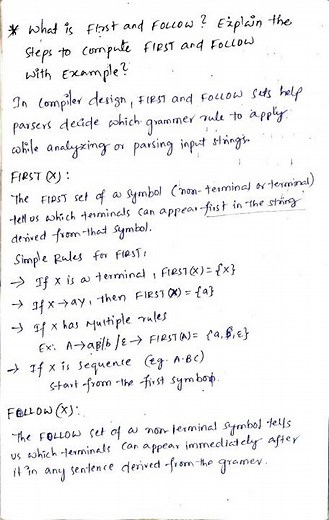 * What is First and Follow? Explain the
steps to compute FIRST and FOLLOW
with Example?
In Compiler design, FIRST and FOLLOW sets help
parsers decide which grammer rule to apply
while analyzing or parsing input strings.
FIRST(X):
The FIRST set of a symbol (non-terminal or terminal)
tell us which terminals can appear first in the string
derived from that symbol.
Simple Rules for FIRST:
→ If X is a terminal, FIRST(X) = {X}
→ If X → aY, then FIRST(X) = {a}
→ If X has Multiple rules
Ex: A → aB/b/ε → FIRST(A) = {a, b, ε}
→ If X is sequence (eg. A·BC)
start from the first symbol.
FOLLOW(X):
The FOLLOW set of a non terminal symbol tells
us which terminals can appear immediately after
it in any sentence derived from the gramer.